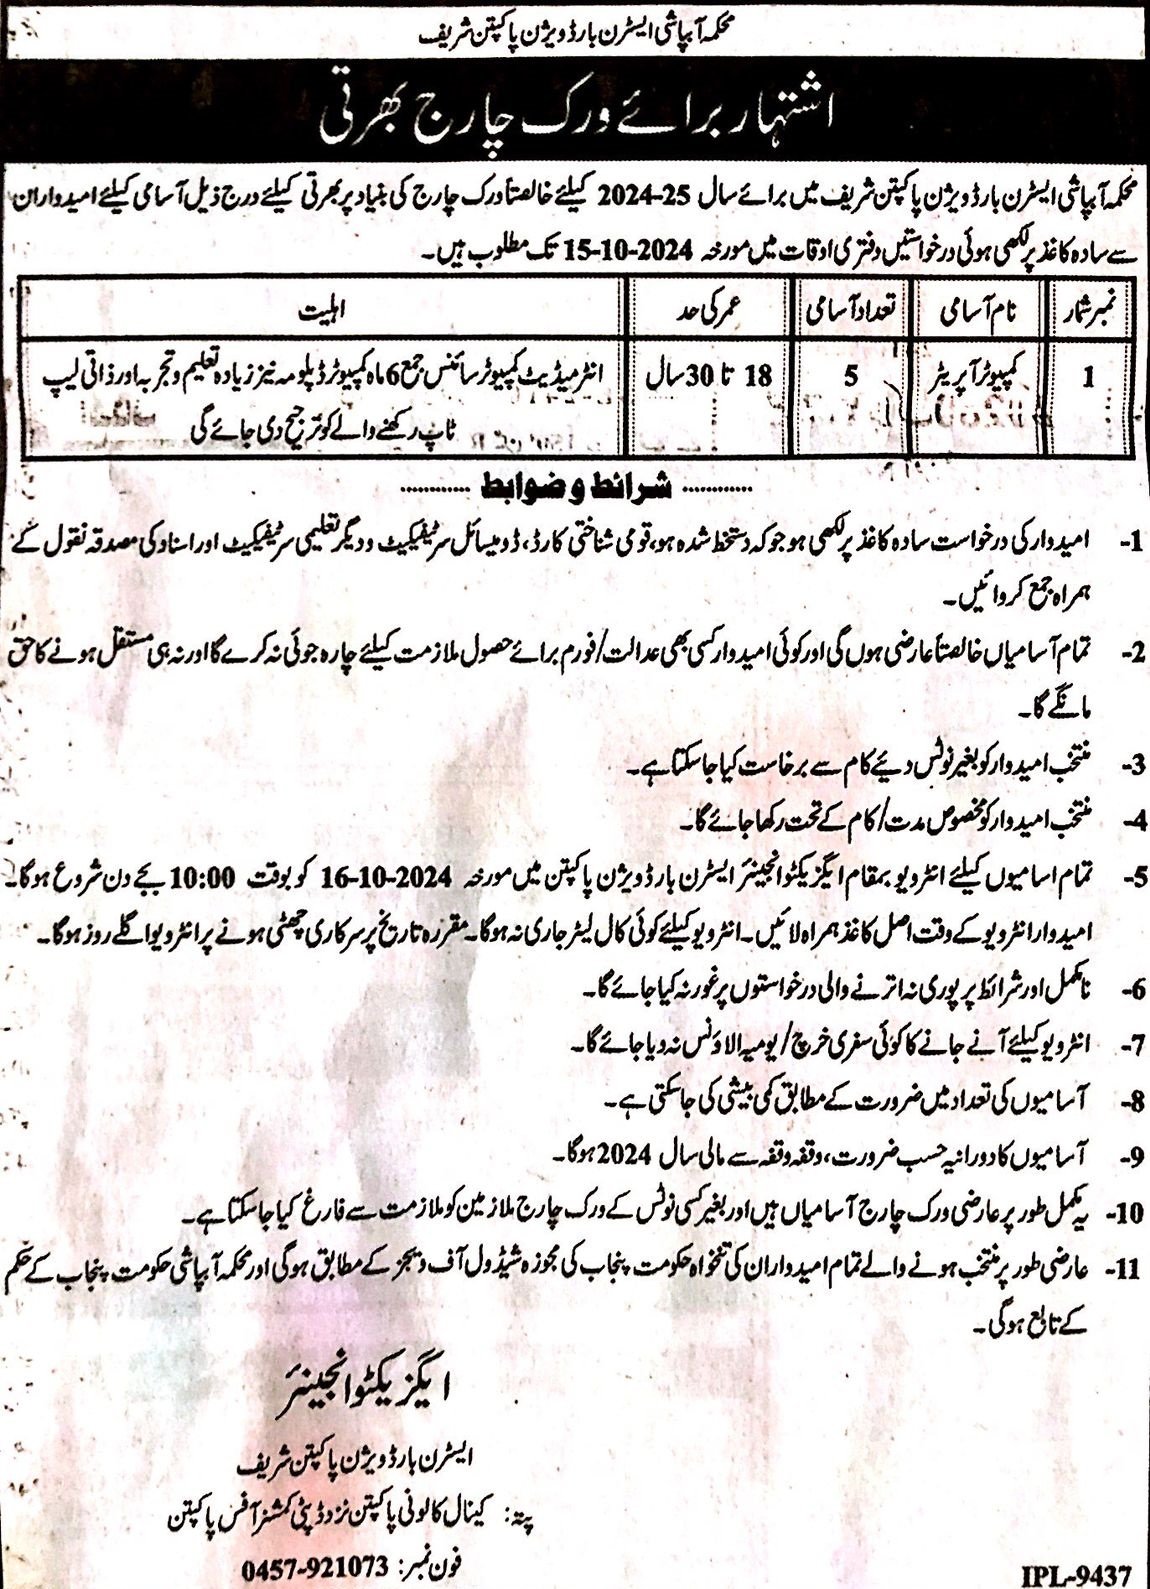 محکمہ آبپاشی ایسٹرن بار ڈویژن پاکپتن شریف
اشتہار برائے ورک چارج بھرتی
محکمہ آبپاشی ایسٹرن بار ڈویژن پاکپتن شریف میں برائے سال 25-2024 کیلئے خالصتاً ورک چارج کی بنیاد پر بھرتی کیلئے درج ذیل آسامی کیلئے امیدواران
سے سادہ کاغذ پر لکھی ہوئی درخواستیں دفتری اوقات میں مورخہ 15-10-2024 تک مطلوب ہیں۔
نمبر شمار نام آسامی تعداد آسامی عمر کی حد اہلیت
1 کمپیوٹر آپریٹر 5 18 تا 30 سال انٹرمیڈیٹ کمپیوٹر سائنس جمع 6 ماہ کمپیوٹر ڈپلومہ نیز زیادہ تعلیم و تجربہ اور ذاتی لیپ
ٹاپ رکھنے والے کو ترجیح دی جائے گی
............ شرائط و ضوابط ............
1- امیدوار کی درخواست سادہ کاغذ پر لکھی ہو جو کہ دستخط شدہ ہو، قومی شناختی کارڈ، ڈومیسائل سرٹیفکیٹ و دیگر تعلیمی سرٹیفکیٹ اور اسناد کی مصدقہ نقول کے
ہمراہ جمع کروائیں۔
2- تمام آسامیاں خالصتاً عارضی ہوں گی اور کوئی امیدوار کسی بھی عدالت/فورم برائے حصول ملازمت کیلئے چارہ جوئی نہ کرے گا اور نہ ہی مستقل ہونے کا حق
مانگے گا۔
3- منتخب امیدوار کو بغیر نوٹس دیئے کام سے برخاست کیا جا سکتا ہے۔
4- منتخب امیدوار کو مخصوص مدت/کام کے تحت رکھا جائے گا۔
5- تمام اسامیوں کیلئے انٹرویو بمقام ایگزیکٹو انجینئر ایسٹرن بار ڈویژن پاکپتن میں مورخہ 16-10-2024 کو بوقت 10:00 بجے دن شروع ہوگا۔
امیدوار انٹرویو کے وقت اصل کاغذ ہمراہ لائیں۔ انٹرویو کیلئے کوئی کال لیٹر جاری نہ ہوگا۔ مقررہ تاریخ پر سرکاری چھٹی ہونے پر انٹرویو اگلے روز ہوگا۔
6- نامکمل اور شرائط پر پوری نہ اترنے والی درخواستوں پر غور نہ کیا جائے گا۔
7- انٹرویو کیلئے آنے جانے کا کوئی سفری خرچ/یومیہ الاؤنس نہ دیا جائے گا۔
8- آسامیوں کی تعداد میں ضرورت کے مطابق کمی بیشی کی جا سکتی ہے۔
9- آسامیوں کا دورانیہ حسب ضرورت، وقفہ وقفہ سے مالی سال 2024 ہوگا۔
10- یہ مکمل طور پر عارضی ورک چارج آسامیاں ہیں اور بغیر کسی نوٹس کے ورک چارج ملازمین کو ملازمت سے فارغ کیا جا سکتا ہے۔
11- عارضی طور پر منتخب ہونے والے تمام امیدواران کی تنخواہ حکومت پنجاب کی مجوزہ شیڈول آف ویجز کے مطابق ہوگی اور محکمہ آبپاشی حکومت پنجاب کے حکم
کے تابع ہوگی۔
ایگزیکٹو انجینئر
ایسٹرن بار ڈویژن پاکپتن شریف
پتہ: کینال کالونی پاکپتن نزد ڈپٹی کمشنر آفس پاکپتن
فون نمبر: 0457-921073
IPL-9437